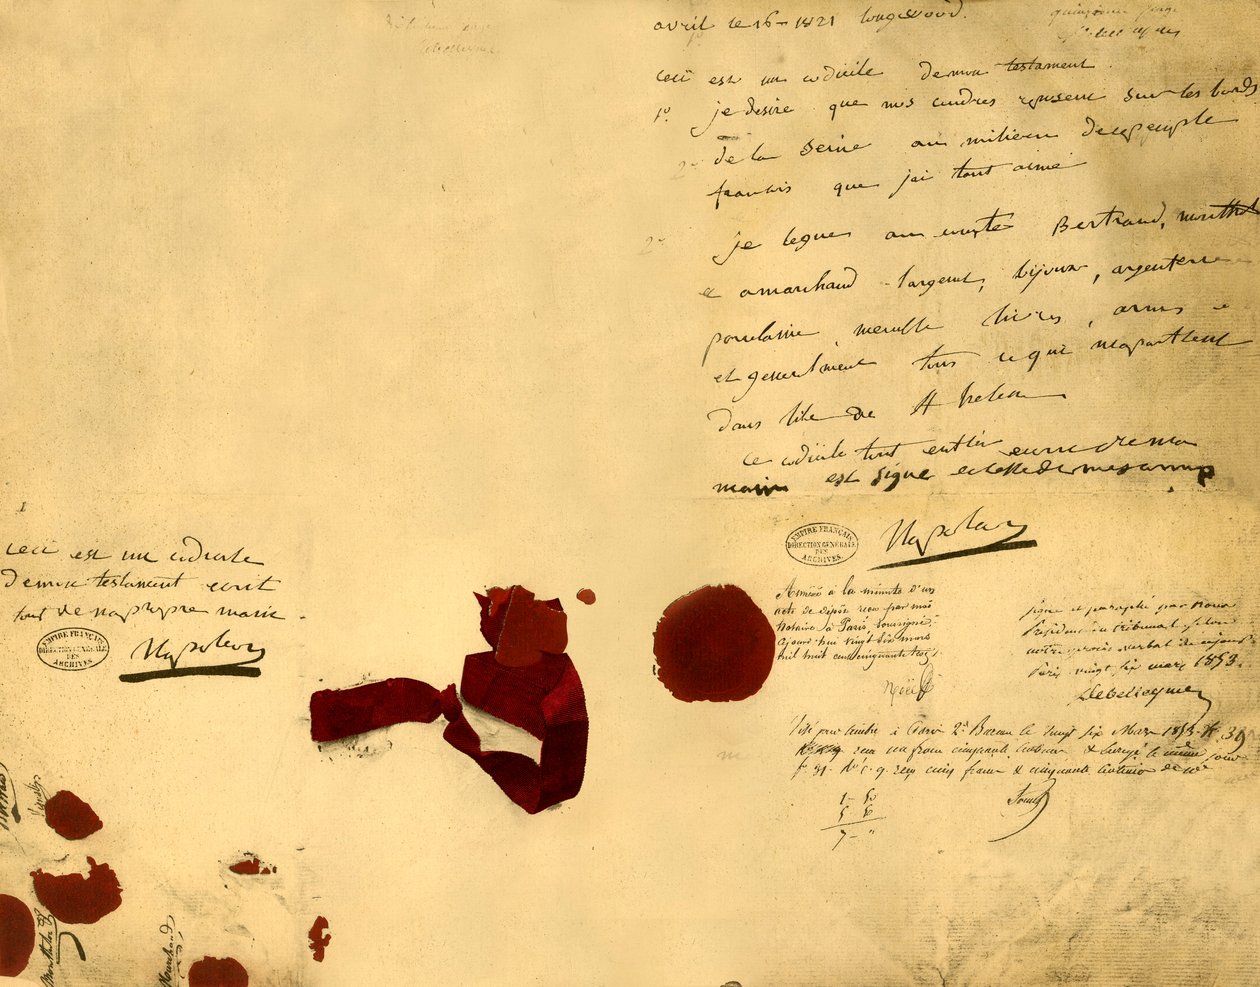 avril le 16 - 1821 longwood.
ceci est un codicile de mon testament.
1º. je desire que mes cendres reposent sur les bords
de la seine au milieu de ce peuple
francais que jai tant aimé
2º je legue au comte Bertrand, montholon
et a marchand largent, bijoux, argenterie
porcelaine meuble livres, armes
et generalment tous ce qui mapartient
dans lile de St helene
ce codicile tout entier ecrit de ma
main est signé et de mes armes
Napoleon
EMPIRE FRANÇAIS
DIRECTION GÉNÉRALE
DES
ARCHIVES
Annexé à la minute d'un
acte de dépôt reçu par moi
Notaire à Paris soussigné
aujourd'hui vingt six mars
mil huit cent cinquante trois
Noël
signé et paraphé par nous
Président du tribunal selon
notre procès verbal de ce jour
Paris vingt six mars 1853.
Debelleyme
Visé pour timbre à Paris 2d Bureau le vingt six Mars 1853
reçu un franc cinquante centimes le même jour
reçu cinq francs & cinquante centimes de
1 - 50
5 - 50
7 - "
1
ceci est un codicile
de mon testament ecrit
tout de ma propre main.
Napoleon
EMPIRE FRANÇAIS
DIRECTION GÉNÉRALE
DES
ARCHIVES
Montholon
Marchand